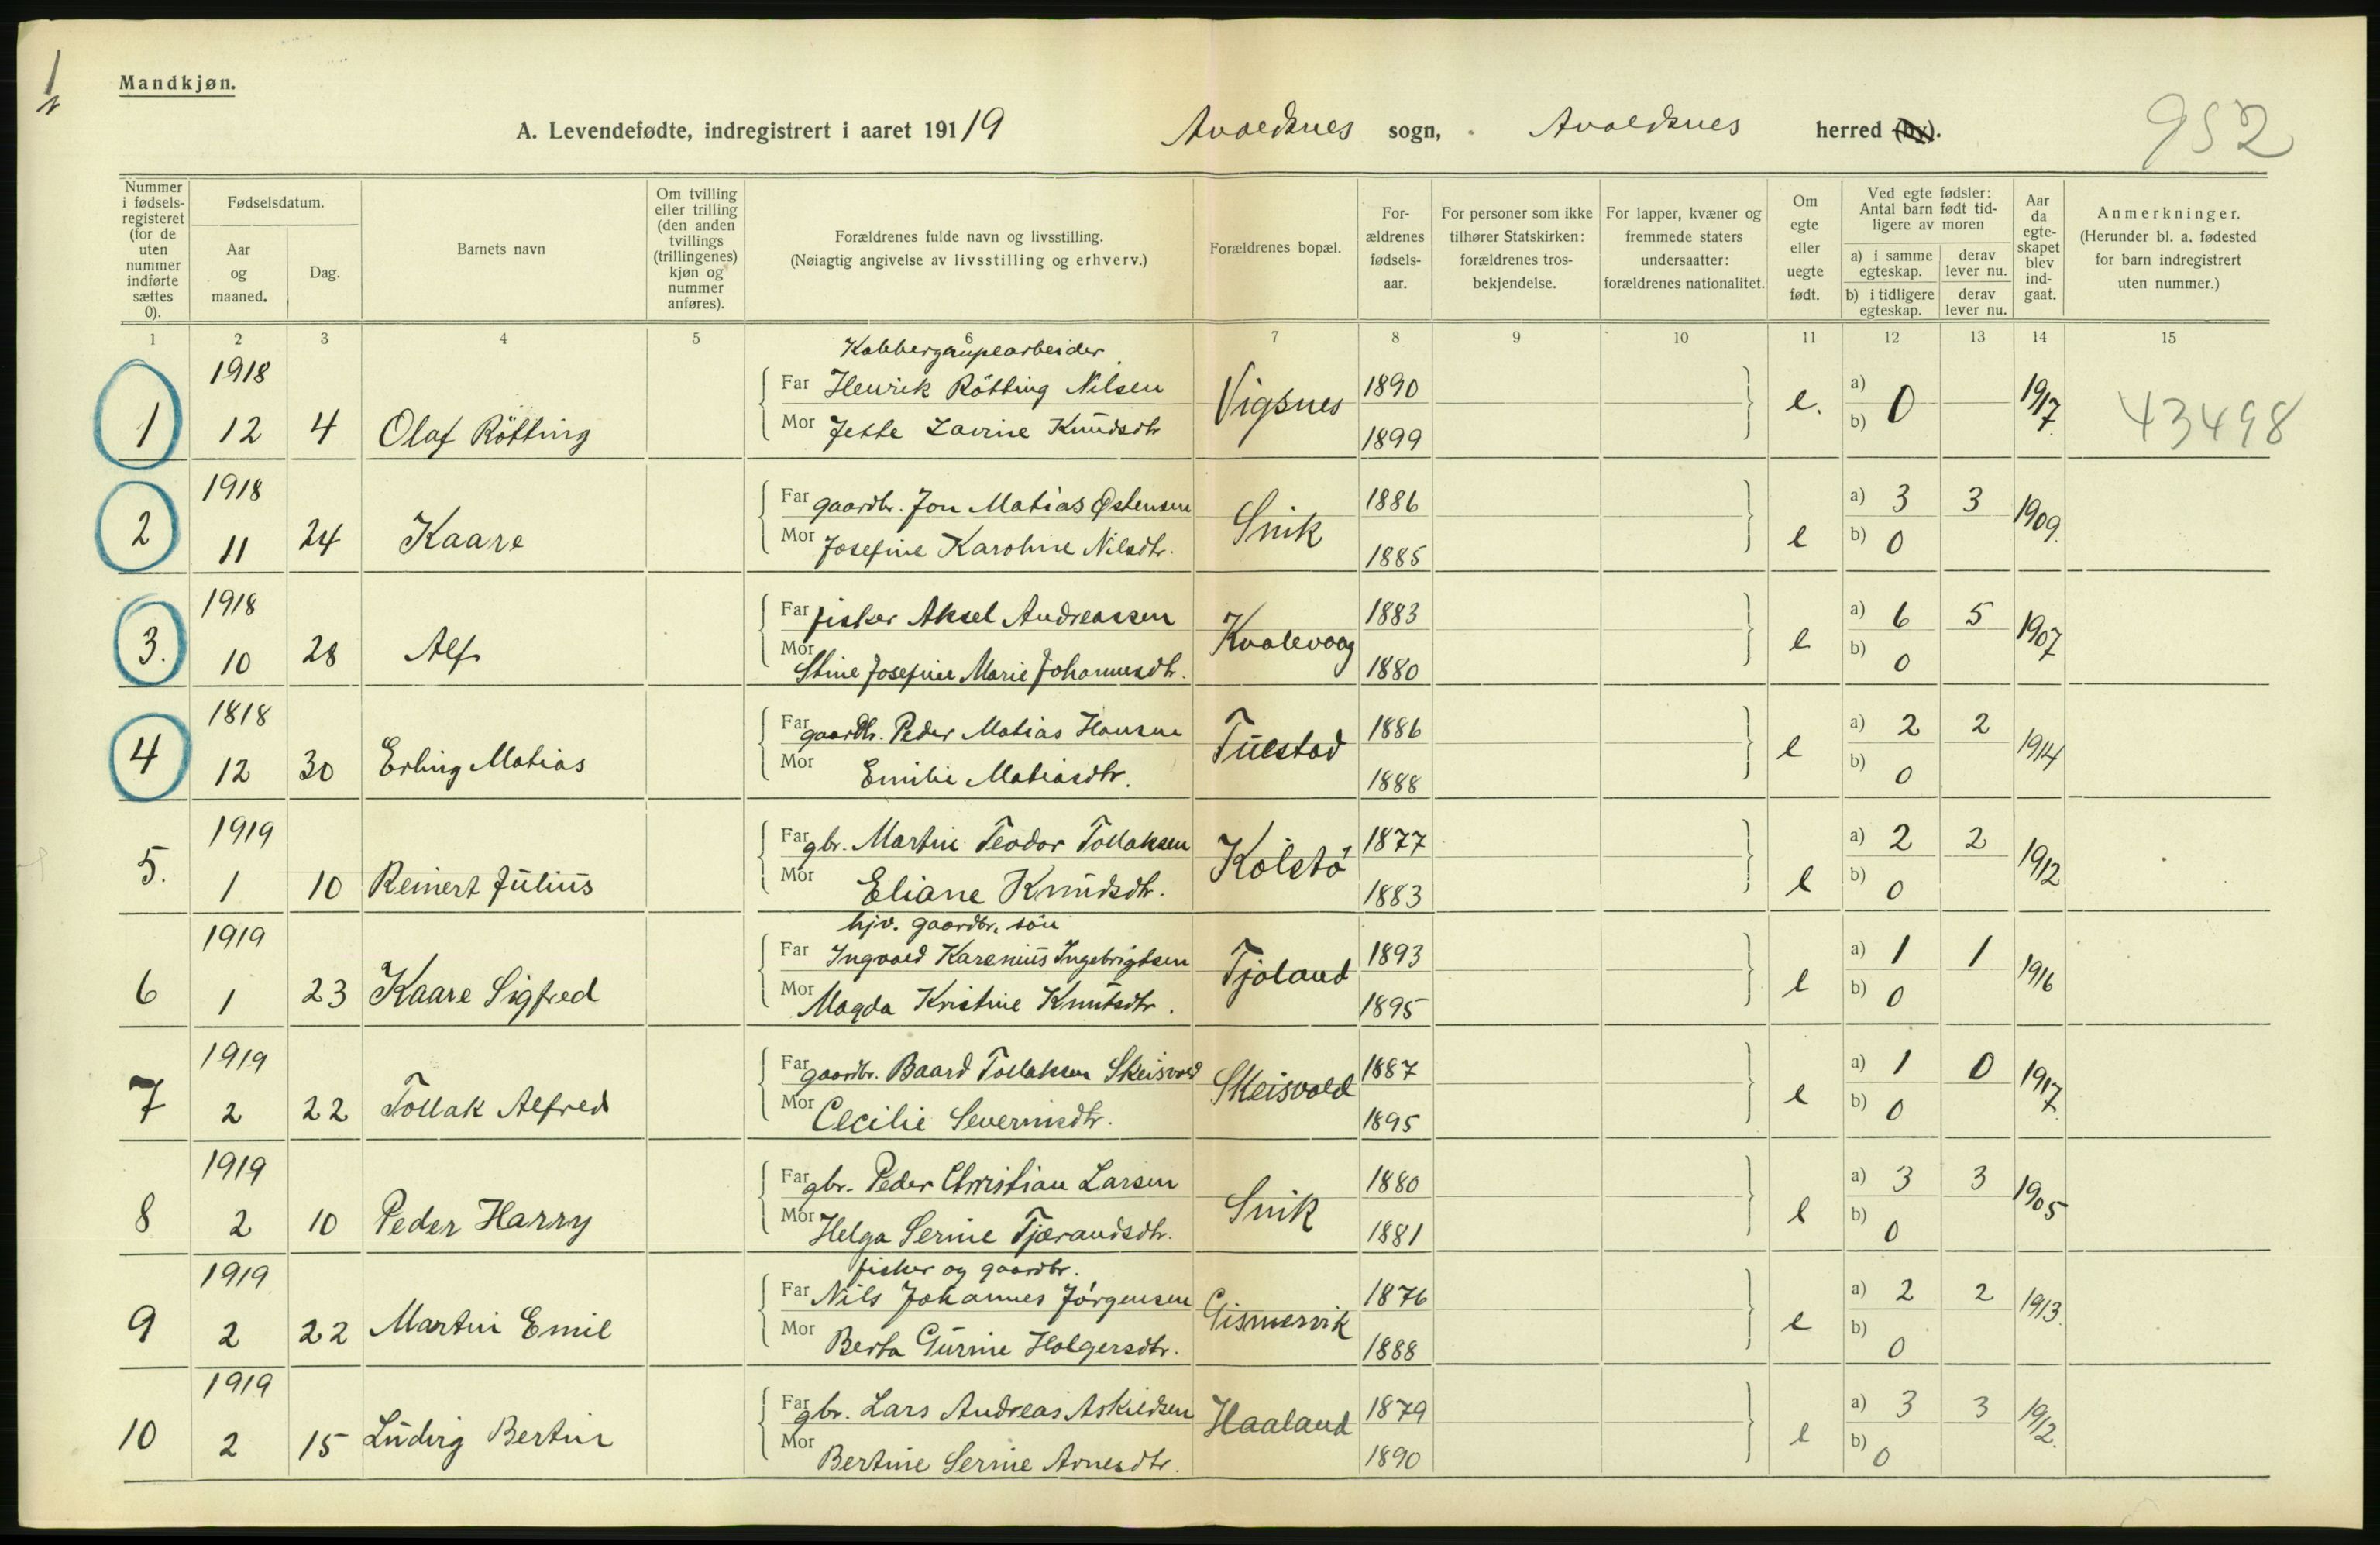 1
Mandkjøn.
A. Levendefødte, indregistrert i aaret 19119 Avaldsnes sogn, Avaldsnes herred (by).
952
Nummer i fødsels-registeret (for de uten nummer indførte sættes 0).
Fødselsdatum.
Aar og maaned.
Dag.
Barnets navn
Om tvilling eller trilling (den anden tvillings (trillingenes) kjøn og nummer anføres).
Forældrenes fulde navn og livsstilling.
(Nøiagtig angivelse av livsstilling og erhverv.)
Forældrenes bopæl.
For-ældrenes fødsels-aar.
For personer som ikke tilhører Statskirken: forældrenes tros-bekjendelse.
For lapper, kvæner og fremmede staters undersaatter: forældrenes nationalitet.
Om egte eller uegte født.
Ved egte fødsler: Antal barn født tid-ligere av moren
a) i samme egteskap.
derav lever nu.
b) i tidligere egteskap.
derav lever nu.
Aar da egte-skapet blev ind-gaat.
Anmerkninger.
(Herunder bl. a. fødested for barn indregistrert uten nummer.)
1 2 3 4 5 6 7 8 9 10 11 12 13 14 15
Kobbergrupearbeider
1918 Far Henrik Rötting Nilsen Vigsnes 1890 e. a) 0 1917. 43498
1 12 4 Olaf Rötting Mor Jette Lovise Knudsdtr 1899 b)
1918 Far gaardbr. Jon Matias Østensen Snik 1886 a) 3 3 1909.
2 11 24 Kaare Mor Josefine Karoline Nilsdtr. 1885 e b) 0
1918 Far fisker Aksel Andreassen Kvalevaag 1883 a) 6 5 1907
3. 10 28 Alf Mor Stine Josefine Marie Johannesdtr. 1880 e b) 0
1818 Far gaardbr. Peder Matias Hansen Tuestad 1886 a) 2 2 1914
4 12 30 Erling Matias Mor Emilie Matiasdtr. 1888 e b) 0
1919 Far gbr. Martin Teodor Tollaksen Kolstö 1877 a) 2 2 1912
5. 1 10 Reinert Julius Mor Eliane Knudsdtr. 1883 e b) 0
hjv. gaardbr. sön
1919 Far Ingvald Karenius Ingebrigtsen Tjoland 1893 a) 1 1 1916
6 1 23 Kaare Sigfred Mor Magda Kristine Knutsdtr. 1895 e b) 0
1919 Far gaardbr. Baard Tollaksen Skeisvold Skeisvold 1887 a) 1 0 1917.
7 2 22 Tollak Alfred Mor Cecilie Severinsdtr. 1895 e b) 0
1919 Far gbr. Peder Christian Larsen Snik 1880 a) 3 3 1905
8 2 10 Peder Harry Mor Helga Serine Tjærandsdtr. 1881 e b) 0
fisker og gaardbr.
1919 Far Nils Johannes Jörgensen Gismervik 1876 a) 2 2 1913.
9 2 22 Martin Emil Mor Berta Gurine Holgersdtr. 1888 e b) 0
1919 Far gbr. Lars Andreas Askildsen Haaland 1879 a) 3 3 1912.
10 2 15 Ludvig Bertin Mor Bertine Serine Arnesdtr. 1890 e b) 0